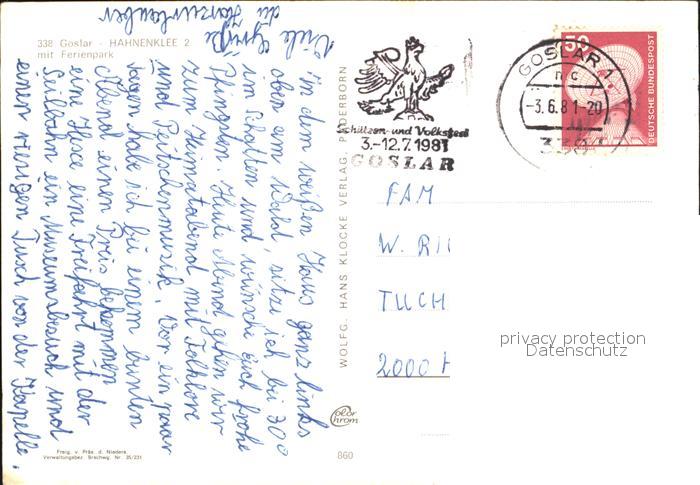 338 Goslar - HAHNENKLEE 2
mit Ferienpark
In dem weißen Haus ganz links
oben am Wald, sitze ich bei 30°
im Schatten und wünsche Euch frohe
Pfingsten. Heute Abend gehen wir
zum Heimatabend mit Folklore
und Peitschenmusik. Vor ein paar
Tagen habe ich bei einem bunten
Abend einen Preis bekommen
eine Hexe eine Freifahrt mit der
Seilbahn ein Museumsbesuch und
einen riesigen Tusch von der Kapelle.
Viele Grüße
die Harzurlauber
Freig. v. Präs. d. Nieders.
Verwaltungsbez. Brschwg. Nr. 35/231
WOLFG. HANS KLOCKE VERLAG, PADERBORN
Color
chrom
860
Schützen- und Volksfest
3.-12.7.1981
GOSLAR
GOSLAR 1
nc
-3.6.81-20
338
50
DEUTSCHE BUNDESPOST
FAM
W. RI
TUCH
2000 H
privacy protection
Datenschutz